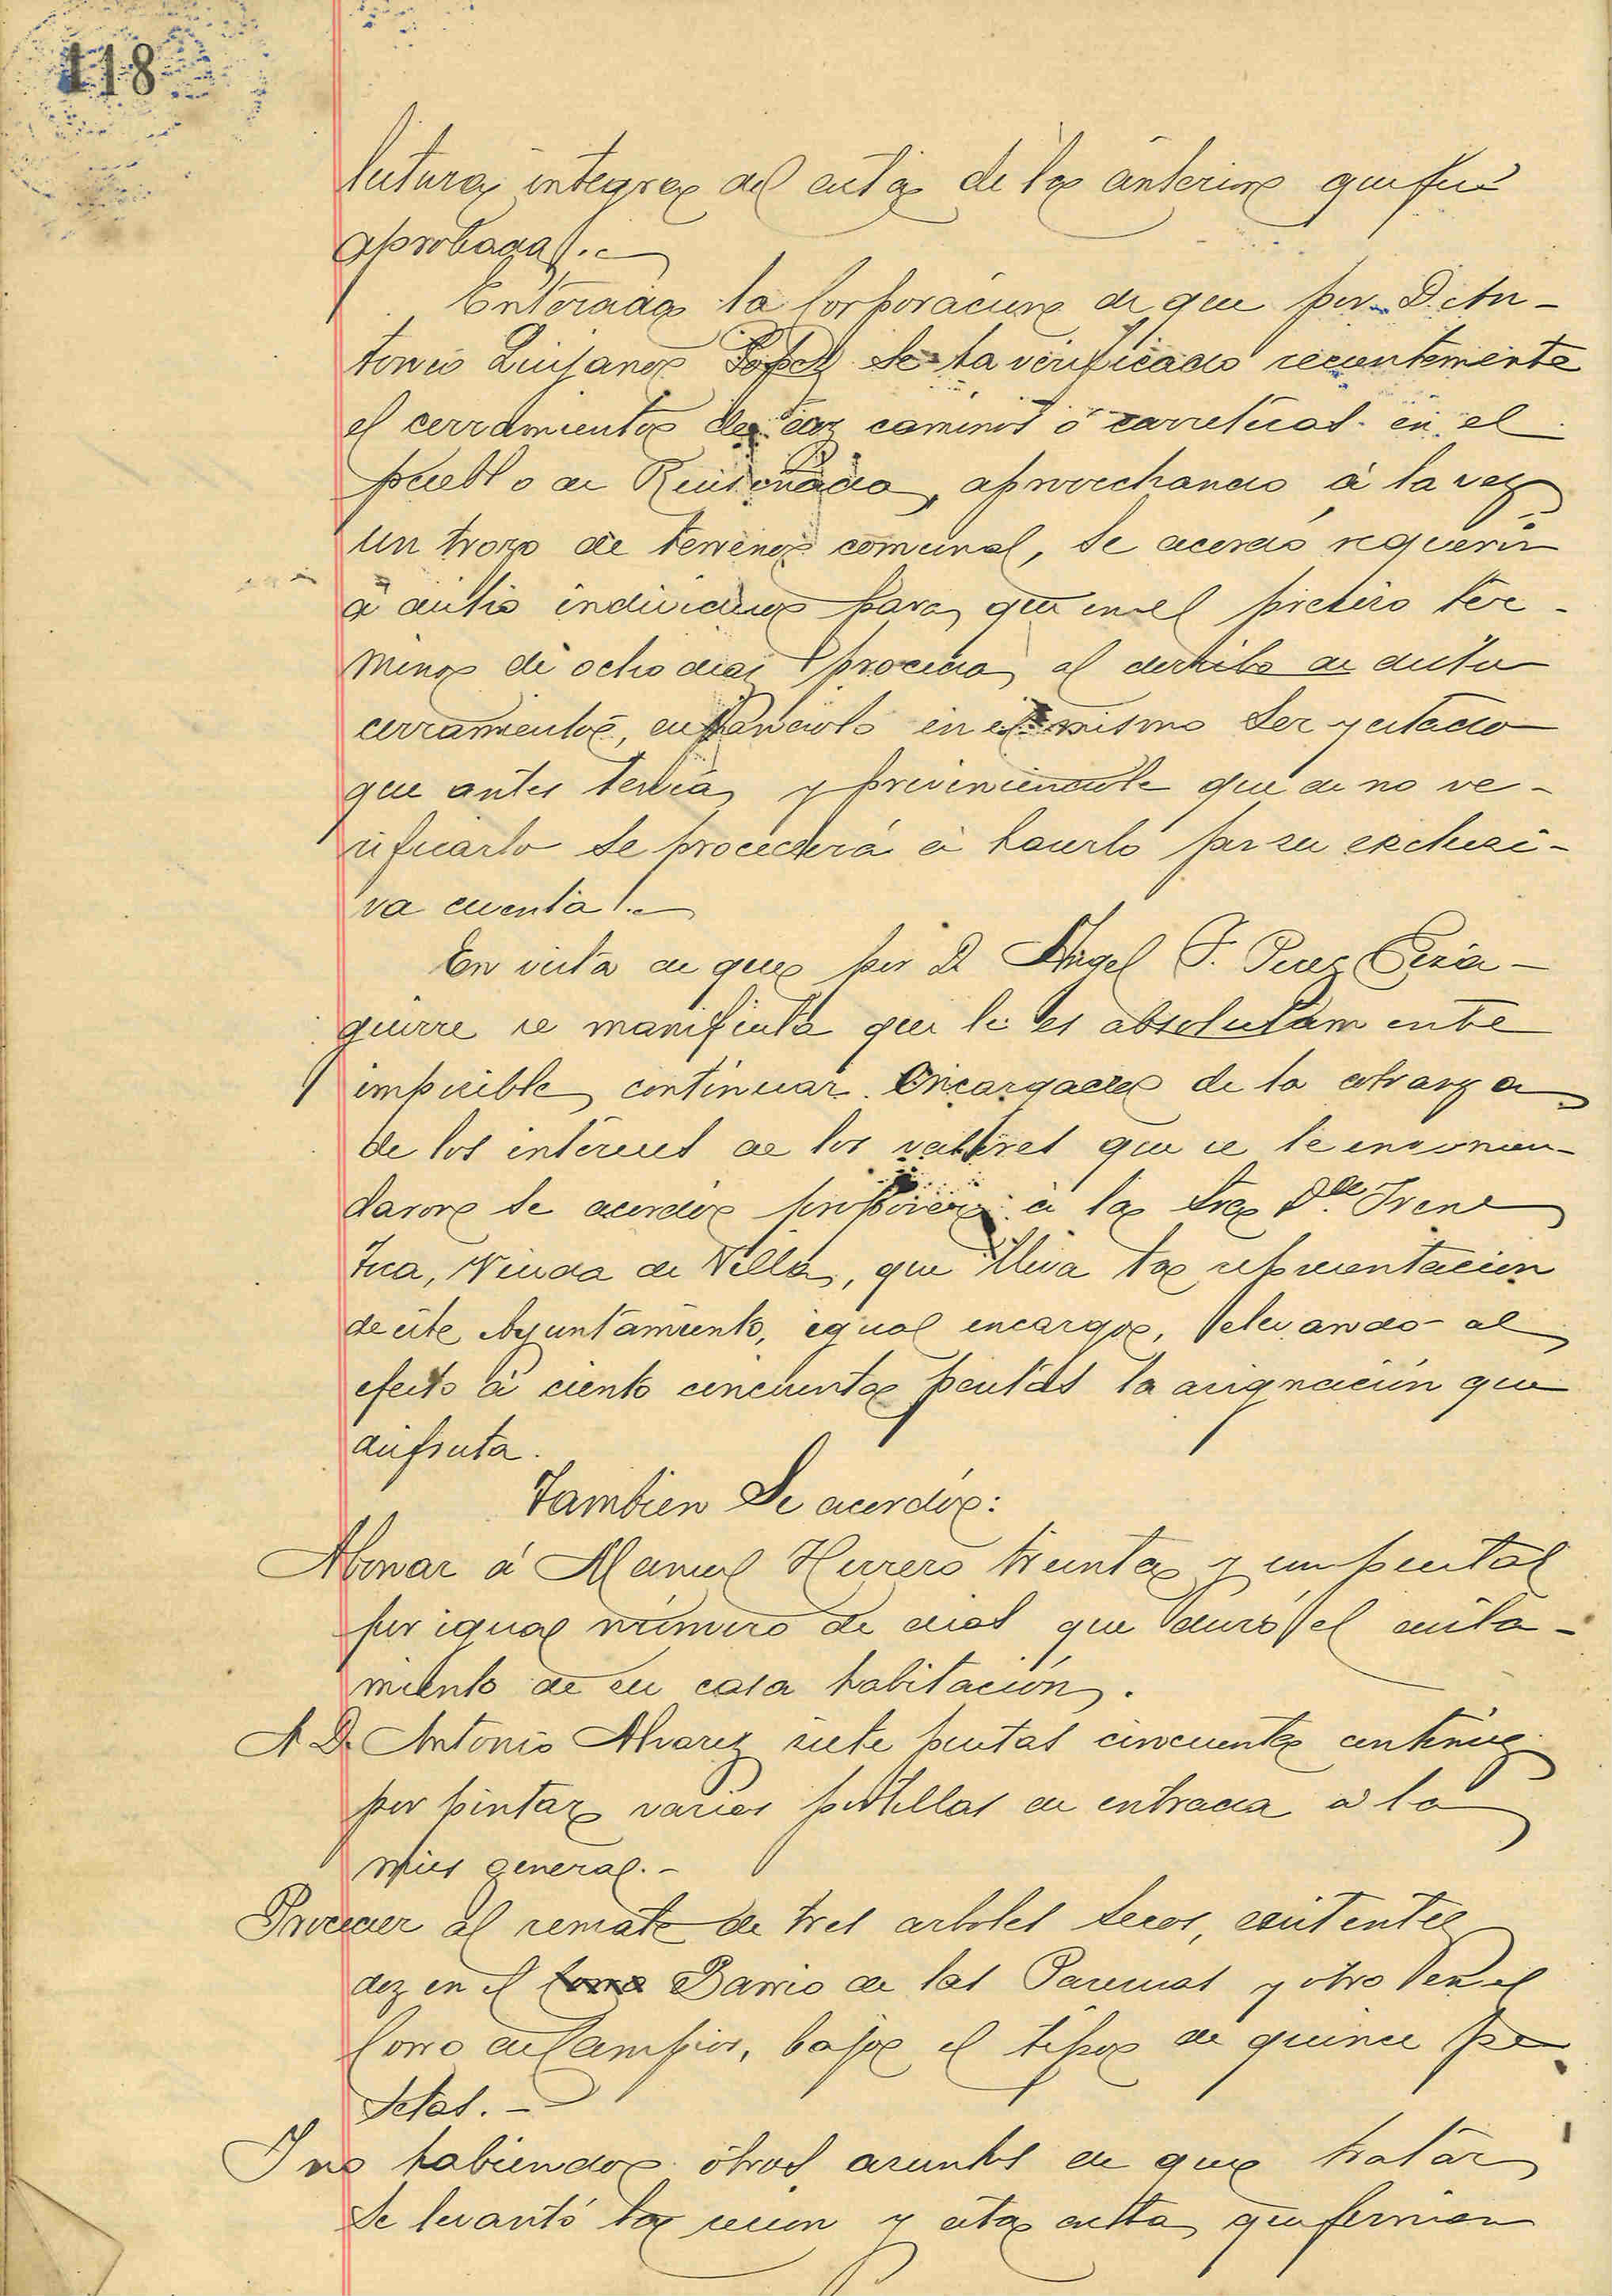 118
lectura integra del acta de la anterior que fué
aprobada.
Enterada la Corporacion de que por D. An-
tonio Quijano Lopez se ha verificado recientemente
el cerramiento de dos caminos ó carreteras en el
pueblo de Ruiseñada, aprovechando á la vez
un trozo de terreno comunal, se acordó requerir
á dicho individuo para que en el preciso ter-
mino de ocho dias proceda al derribo de dicho
cerramiento, dejandolo en el mismo ser y estado
que antes tenia y previniendole que de no ve-
rificarlo se procederá á hacerlo por su exclusi-
va cuenta.
En vista de que por D. Angel F. Perez Eiza-
guirre se manifiesta que le es absolutamente
imposible continuar encargado de la cobranza
de los intereses de los valores que se le encomen-
daron se acordó proponer á la Sra Dª Irene
Viuda de Villa, que lleva la representacion
de este Ayuntamiento, igual encargo, elevando al
efecto á ciento cincuenta pesetas la asignación que
disfruta.
Tambien Se acordó:
Abonar á Manuel Herrero treinta y un pesetas
por igual número de dias que duró el aisla-
miento de su casa habitación.
A D. Antonio Alvarez siete pesetas cincuenta centimos
por pintar varias portillas de entrada á la
mies general.
Proceder al remate de tres arboles secos, existentes
dos en el Barrio de las y otro en el
Corro de Campios, bajo el tipo de quince pe
setas.
I no habiendo otros asuntos de que tratar
se levantó la sesion y esta acta que firman